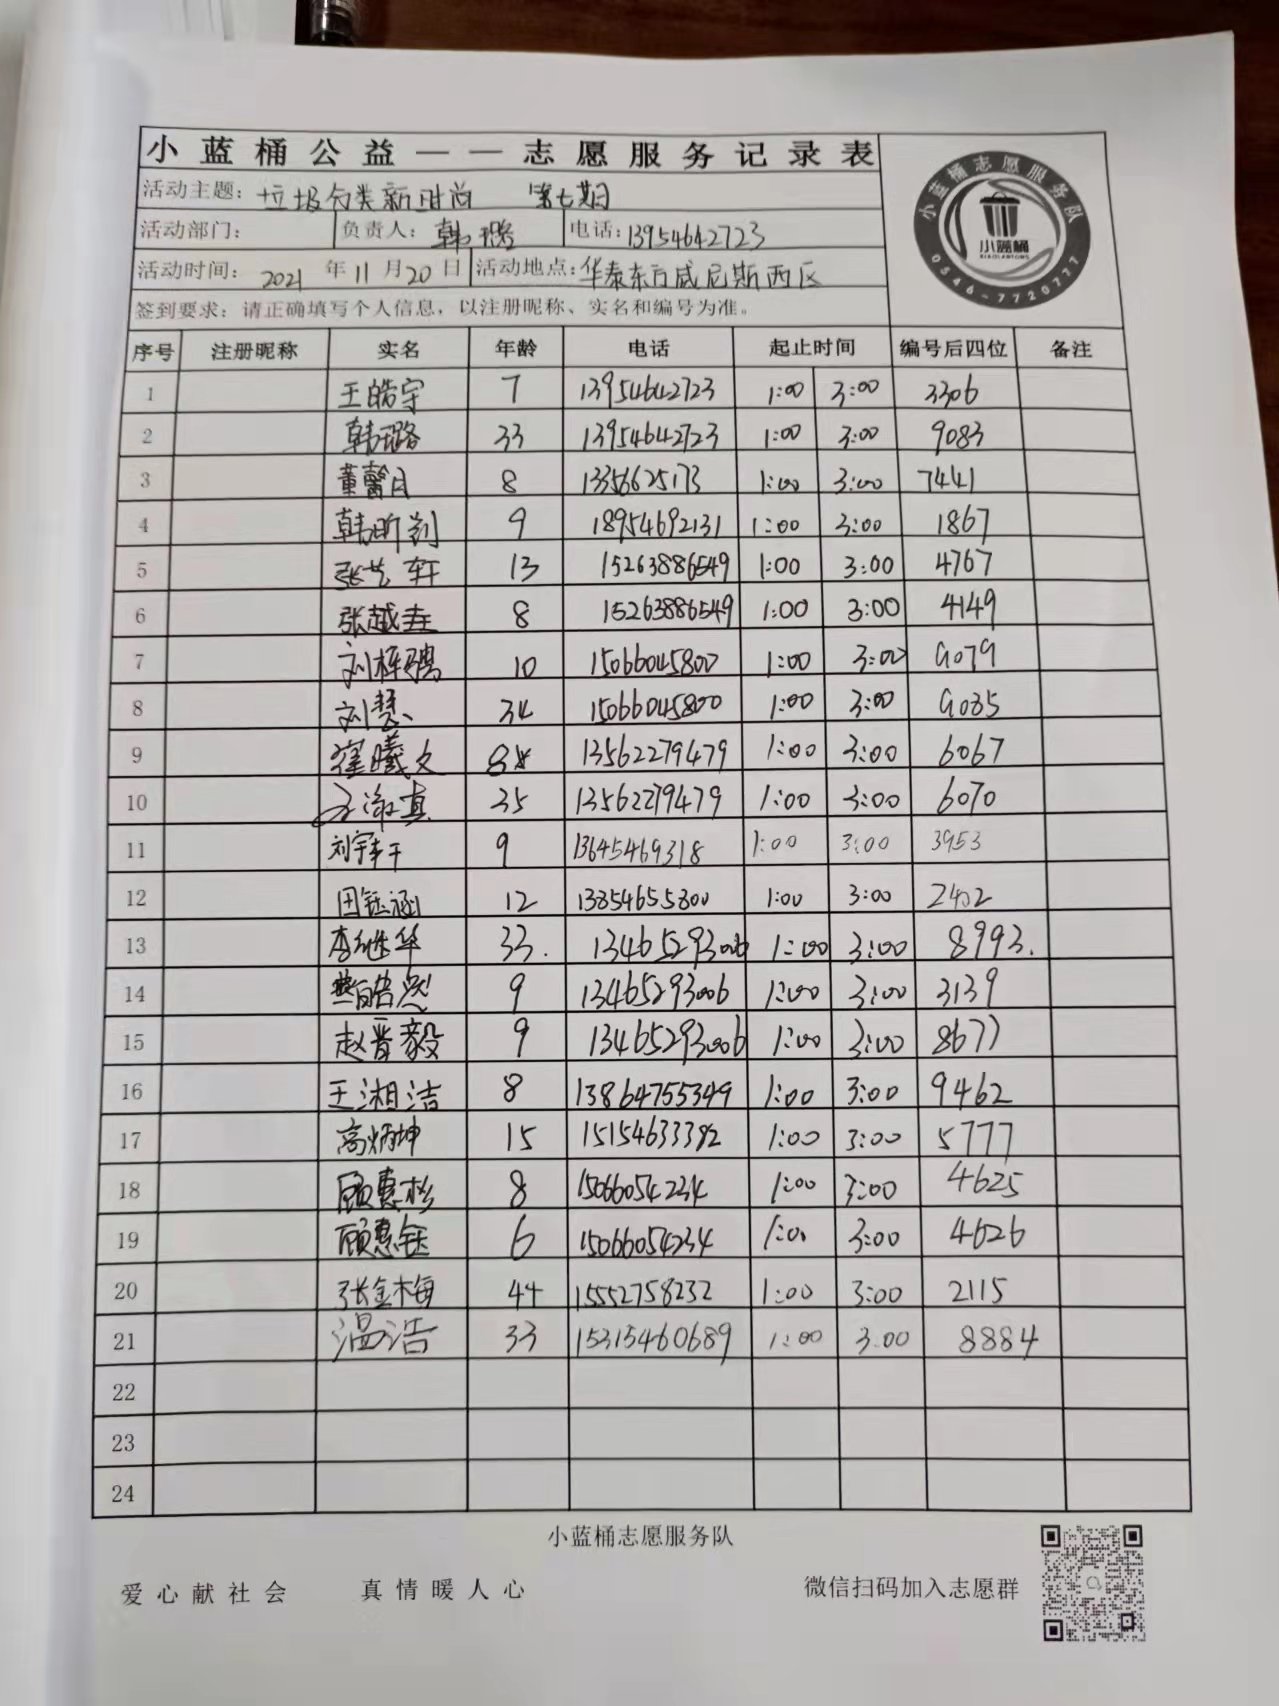 小蓝桶公益——志愿服务记录表
小蓝桶志愿服务队
小蓝桶
XIAOLANTONG
0546-7720777
活动主题：垃圾分类新时尚 第七期
活动部门： 负责人：韩璐 电话：13954642723
活动时间：2021年11月20日 活动地点：华泰东方威尼斯西区
签到要求：请正确填写个人信息，以注册昵称、实名和编号为准。
序号 注册昵称 实名 年龄 电话 起止时间 编号后四位 备注
1 王皓宇 7 13954642723 1:00 3:00 3306
2 韩璐 33 13954642723 1:00 3:00 9083
3 董馨月 8 13356625173 1:00 3:00 7441
4 韩昕 9 18954692131 1:00 3:00 1867
5 张艺轩 13 15263886549 1:00 3:00 4767
6 张越垚 8 15263886549 1:00 3:00 4149
7 刘梓骁 10 15066045800 1:00 3:00 9079
8 刘慧 34 15066045800 1:00 3:00 9085
9 崔曦文 8 13562279479 1:00 3:00 6067
10 真 35 13562279479 1:00 3:00 6070
11 刘宇轩 9 13645469318 1:00 3:00 3953
12 田钰涵 12 13854655800 1:00 3:00 2402
13 李继华 33. 13465293006 1:00 3:00 8993.
14 樊皓然 9 13465293006 1:00 3:00 3139
15 赵晋毅 9 13465293006 1:00 3:00 8677
16 王湘洁 8 13864755349 1:00 3:00 9462
17 高炳坤 15 15154633382 1:00 3:00 5777
18 顾惠杉 8 15066054234 1:00 3:00 4625
19 顾惠钰 6 15066054234 1:00 3:00 4626
20 张金梅 44 15552758232 1:00 3:00 2115
21 温浩 33 15315460689 1:00 3:00 8884
22
23
24
小蓝桶志愿服务队
爱心献社会 真情暖人心 微信扫码加入志愿群